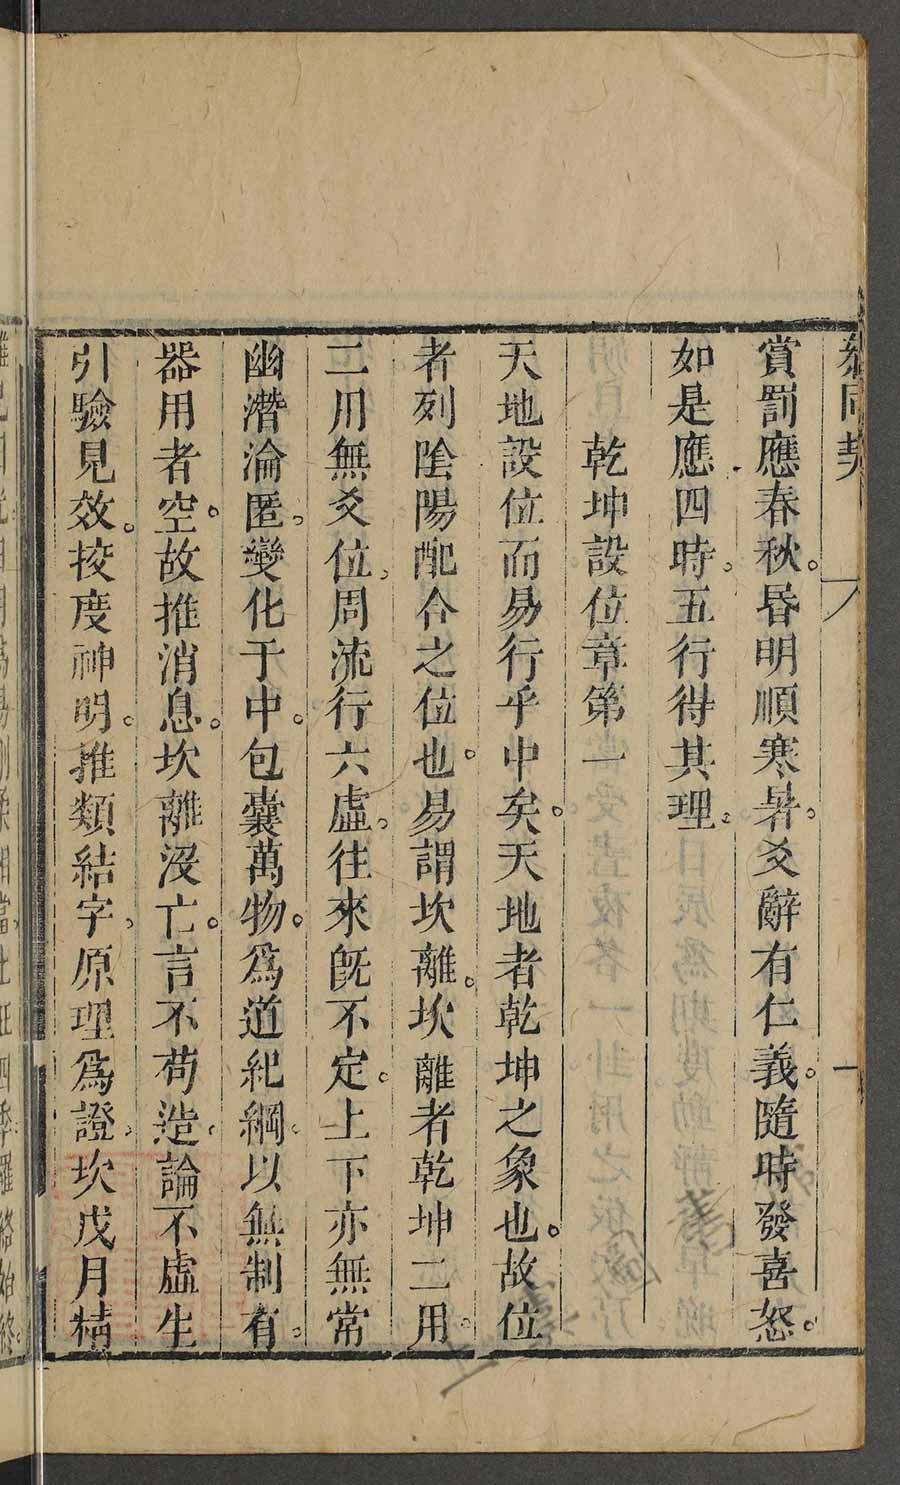 參同契 一
賞罰應春秋。昏明順寒暑。爻辭有仁義。隨時發喜怒。
如是應四時。五行得其理。
乾坤設位章第一
天地設位而易行乎中矣。天地者乾坤之象也。故位
者列陰陽配合之位也。易謂坎離。坎離者乾坤二用。
二用無爻位。周流行六虛。往來旣不定。上下亦無常
幽潛淪匿。變化于中。包囊萬物。爲道紀綱。以無制有。
器用者空。故推消息。坎離沒亡。言不苟造。論不虛生
引驗見效。挍度神明。推類結字。原理爲證。坎戊月精